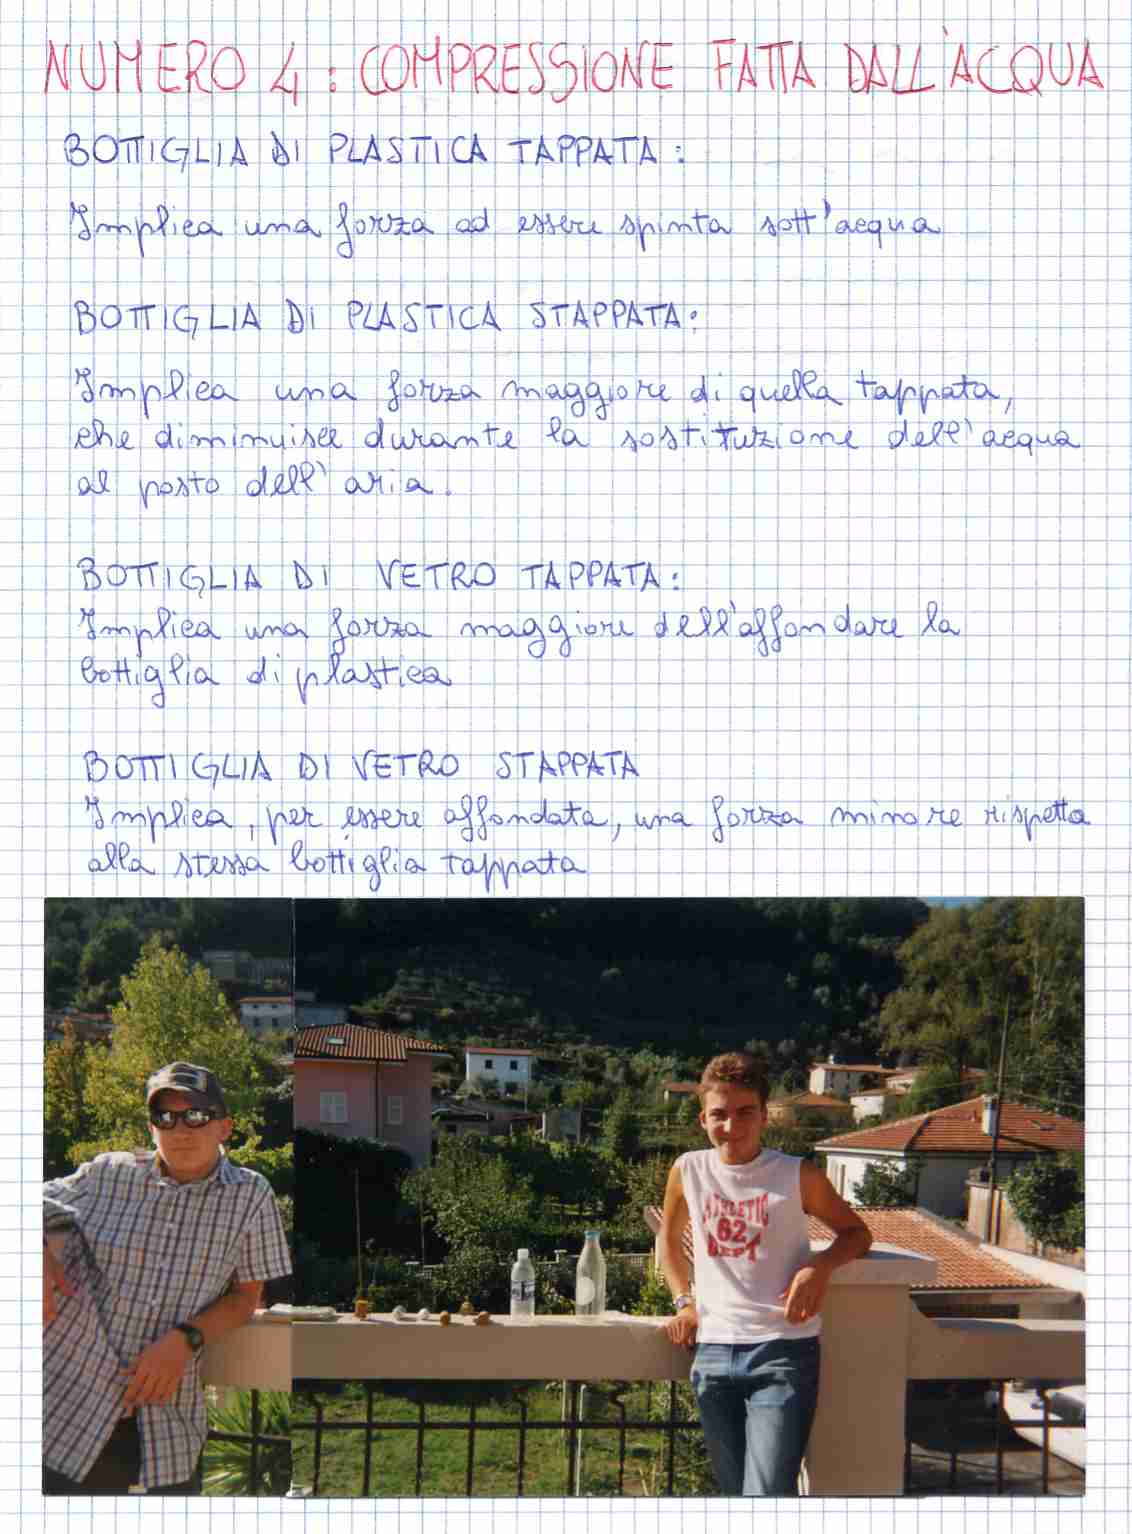 NUMERO 4: COMPRESSIONE FATTA DALL'ACQUA
BOTTIGLIA DI PLASTICA TAPPATA:
Implica una forza ad essere spinta sott'acqua
BOTTIGLIA DI PLASTICA STAPPATA:
Implica una forza maggiore di quella tappata,
che diminuisce durante la sostituzione dell'acqua
al posto dell'aria.
BOTTIGLIA DI VETRO TAPPATA:
Implica una forza maggiore dell'affondare la
bottiglia di plastica
BOTTIGLIA DI VETRO STAPPATA
Implica, per essere affondata, una forza minore rispetto
alla stessa bottiglia tappata
ATHLETIC
62
DEPT